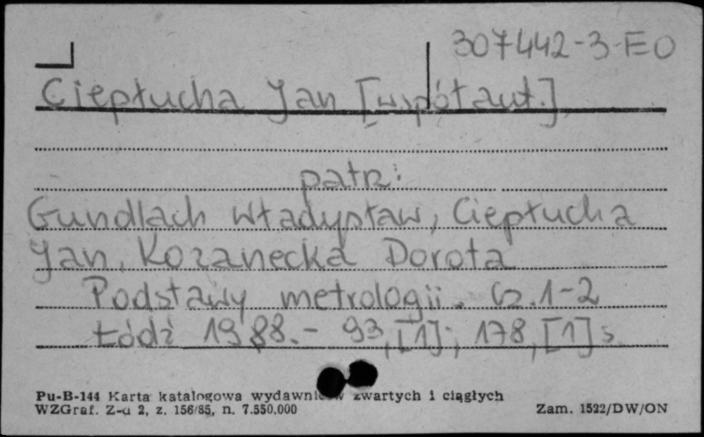 307442-3-EO
Ciepłucha Jan [współaut.]
patrz:
Gundlach Władysław, Ciepłucha
Jan, Kozanecka Dorota
Podstawy metrologii. Cz. 1-2
Łódź 1988.- 93,[1]; 178,[1] s
Pu-B-144 Karta katalogowa wydawnictw zwartych i ciągłych
WZGraf. Z-d 2, z. 156/85, n. 7.550.000
Zam. 1522/DW/ON